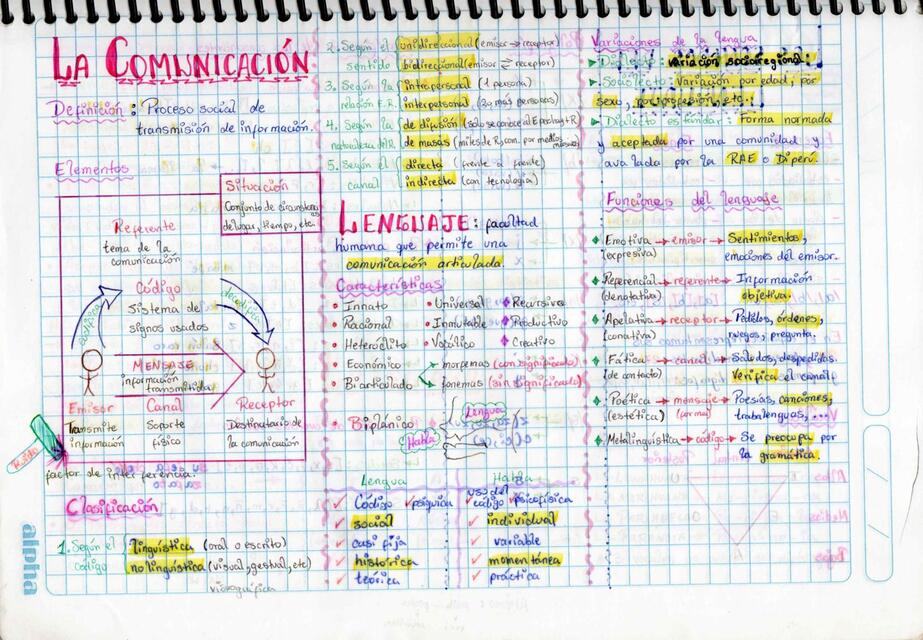 LA COMUNICACIÓN
Definición: Proceso social de
transmisión de información.
Elementos
Situación
Conjunto de circunstancias
de lugar, tiempo, etc.
Referente
tema de la
comunicación
Código
Sistema de
signos usados
codifica
decodifica
MENSAJE
información
transmitida
Emisor
Transmite
información
Canal
Soporte
físico
Receptor
Destinatario de
la comunicación
Ruido
factor de interferencia.
Clasificación
1. Según el código
lingüística (oral o escrito)
no lingüística (visual, gestual, etc)
2. Según el sentido
unidireccional (emisor → receptor)
bidireccional (emisor ⇄ receptor)
3. Según la relación E.R.
intrapersonal (1 persona)
interpersonal (2 o más personas)
4. Según la naturaleza del R.
de difusión (solo se conoce al E, pero hay + R)
de masas (miles de R, com. por medios masivos)
5. Según el canal
directa (frente a frente)
indirecta (con tecnología)
LENGUAJE: facultad
humana que permite una
comunicación articulada.
Características
• Innato
• Racional
• Heteróclito
• Económico
• Biarticulado
• Universal
• Inmutable
• Recursivo
• Productivo
• Creativo
morfemas (con significado)
fonemas (sin significado)
• Biplánico
Lengua
Habla
Lengua
✓ Código ✓ psíquica
✓ social
✓ casi fija
✓ histórica
✓ teórica
Habla
✓ uso del código ✓ psicofísica
✓ individual
✓ variable
✓ momentánea
✓ práctica
Variaciones de la lengua
➤ Dialecto: variación socioregional.
➤ Sociolecto: Variación por edad, por
sexo, por profesión, etc.
➤ Dialecto estándar: Forma normada
y aceptada por una comunidad y
avalada por la RAE o Diperú.
Funciones del lenguaje
♦ Emotiva → emisor → Sentimientos,
(expresiva) emociones del emisor.
♦ Referencial → referente → Información
(denotativa) objetiva.
♦ Apelativa → receptor → Pedidos, órdenes,
(conativa) ruegos, pregunta.
♦ Fática → canal → Saludos, despedidas.
(de contacto) Verifica el canal
♦ Poética → mensaje → Poesías, canciones,
(estética) (forma) trabalenguas, ...
♦ Metalingüística → código → Se preocupa por
la gramática.
alpha